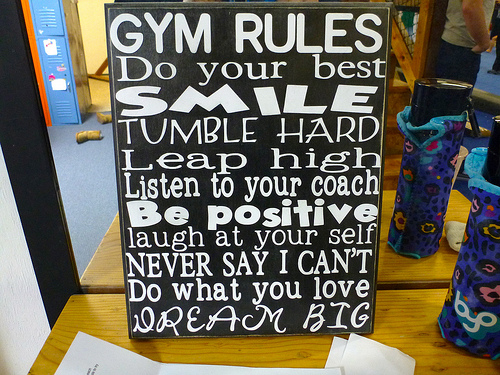 GYM RULES
Do your best
SMILE
TUMBLE HARD
Leap high
Listen to your coach
Be positive
laugh at your self
NEVER SAY I CAN'T
Do what you love
DREAM BIG
byo